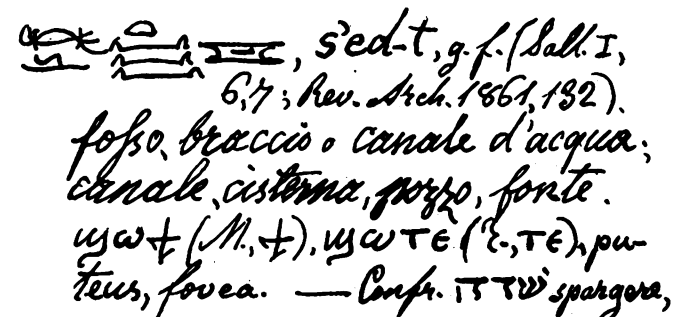 , s'ed-t, g. f. (Sall. I,
6,7; Rev. Arch. 1861, 132).
fosso, braccio o canale d'acqua;
canale, cisterna, pozzo, fonte.
ϣⲱϯ (M., ϯ), ϣⲱⲧⲉ (ⲧⲉ), pu-
teus, fovea. — Confr. spargere,